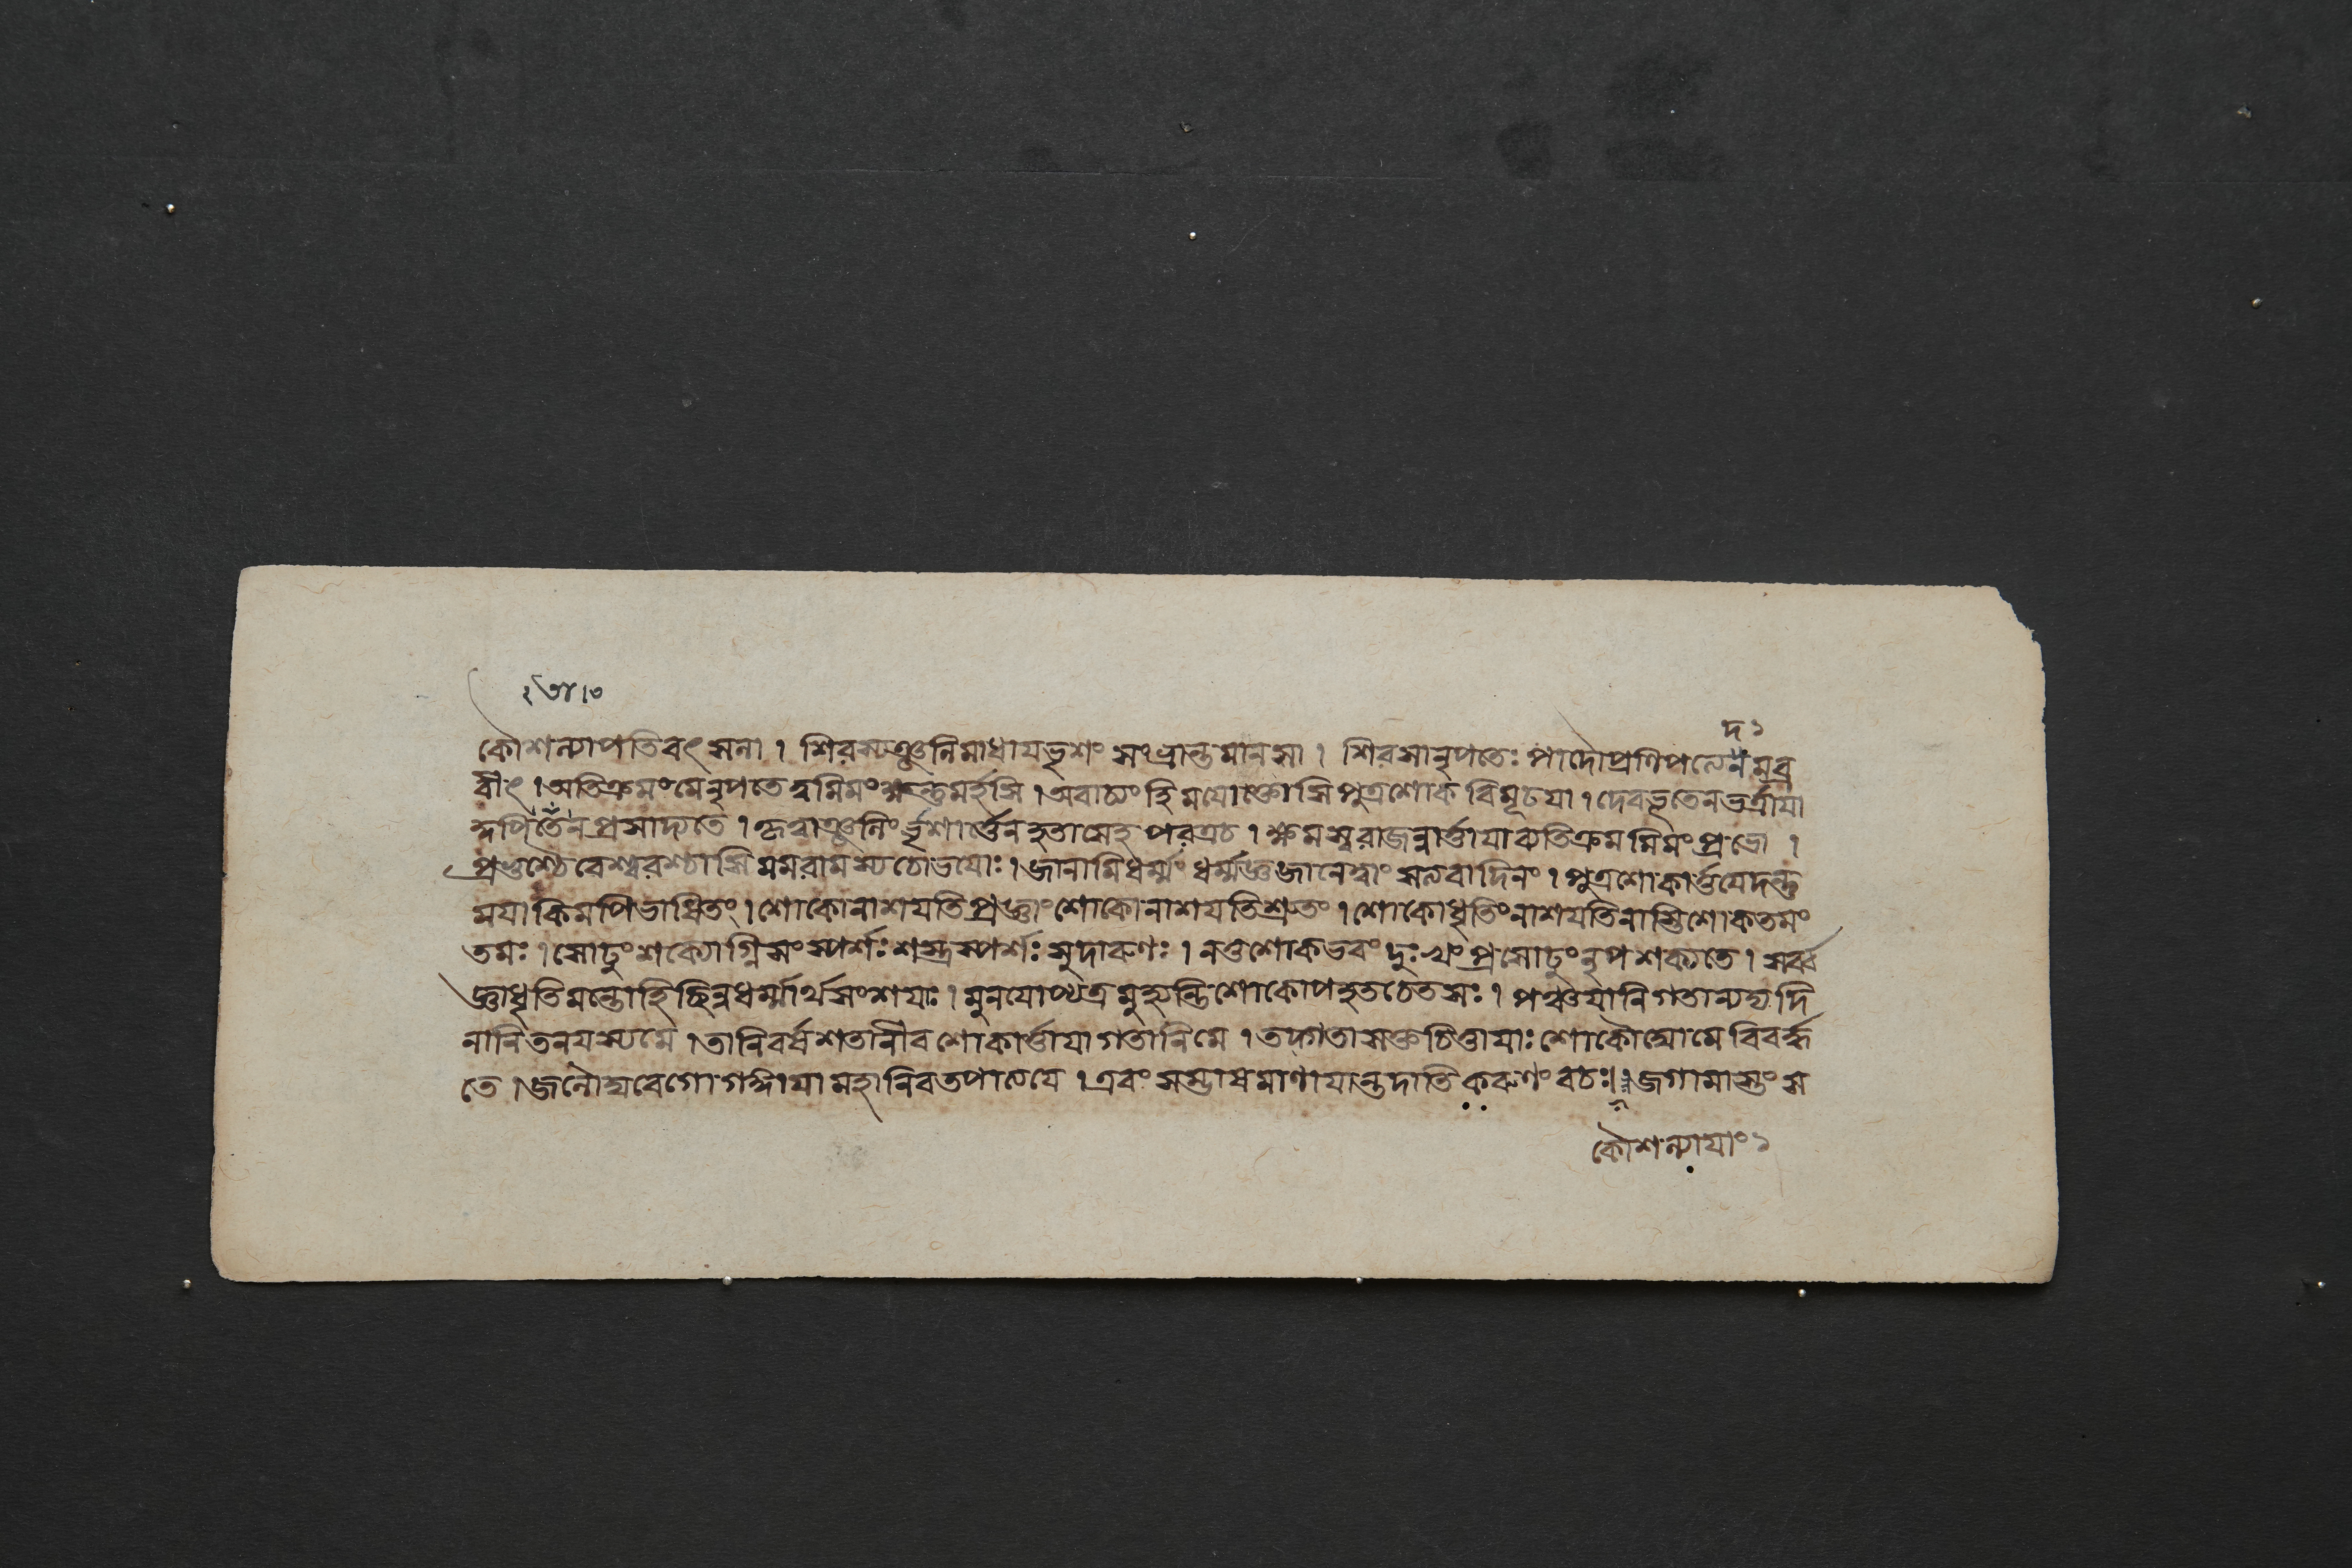 দ১
কৌশল্যাপতিবৎসলা । শিরস্যঞ্জলিমাধায ভৃশং সংভ্রান্তমানসা । শিরসানৃপতেঃ পাদৌপ্রণিপত্যেনমব্র
বীৎ । অতিক্রমংমেনৃপতেত্বমিমংক্ষন্তুমর্হসি । অবাচ্যংহিমযোক্তোসিপুত্রশোকবিমূঢযা । দেবভূতেনভর্ত্রাযা
প্রসাদ্যতে । কৃত্বাঞ্জলিংভৃশার্ত্তেনহতাসেহপরত্রচ । ক্ষমস্বরাজন্নার্ত্তাযাব্যতিক্রমমিমংপ্রভো ।
প্রভুশ্চৈবেশ্বরশ্চাসিমমরামস্যচোভযোঃ । জানামিধর্ম্মংধর্ম্মজ্ঞজানেত্বাংসত্যবাদিনং । পুত্রশোকার্ত্তযেদন্তু
মযাকিমপিভাষিতং । শোকোনাশযতিপ্রজ্ঞাংশোকোনাশযতিশ্রুতং । শোকোধৃতিংনাশযতিনাস্তিশোকতমং
তমঃ । সোঢুংশক্যোগ্নিসংস্পর্শঃশস্ত্রস্পর্শঃসুদারুণঃ । নতুশোকভবংদুঃখংপ্রসোঢুংনৃপশক্যতে । সর্ব্ব
জ্ঞাধৃতিমন্তোহিছিন্নধর্ম্মার্থসংশযাঃ । মুনযোপ্যত্রমুহ্যন্তিশোকোপহতচেতসঃ । পঞ্চযানিগতান্যদ্যদি
নানিতনযস্যমে । তানিবর্ষশতানীবশোকার্ত্তাযাগতানিমে । তদ্গতাসক্তচিত্তাযাঃশোকৌঘোমেবিবর্দ্ধ
তে । জলৌঘবেগোগঙ্গাযামহানিবতপাত্যযে । এবংসম্ভাষমাণাযান্তদাতিকরুণংবচঃ । জগামাস্তংস
কৌশল্যাযাং১